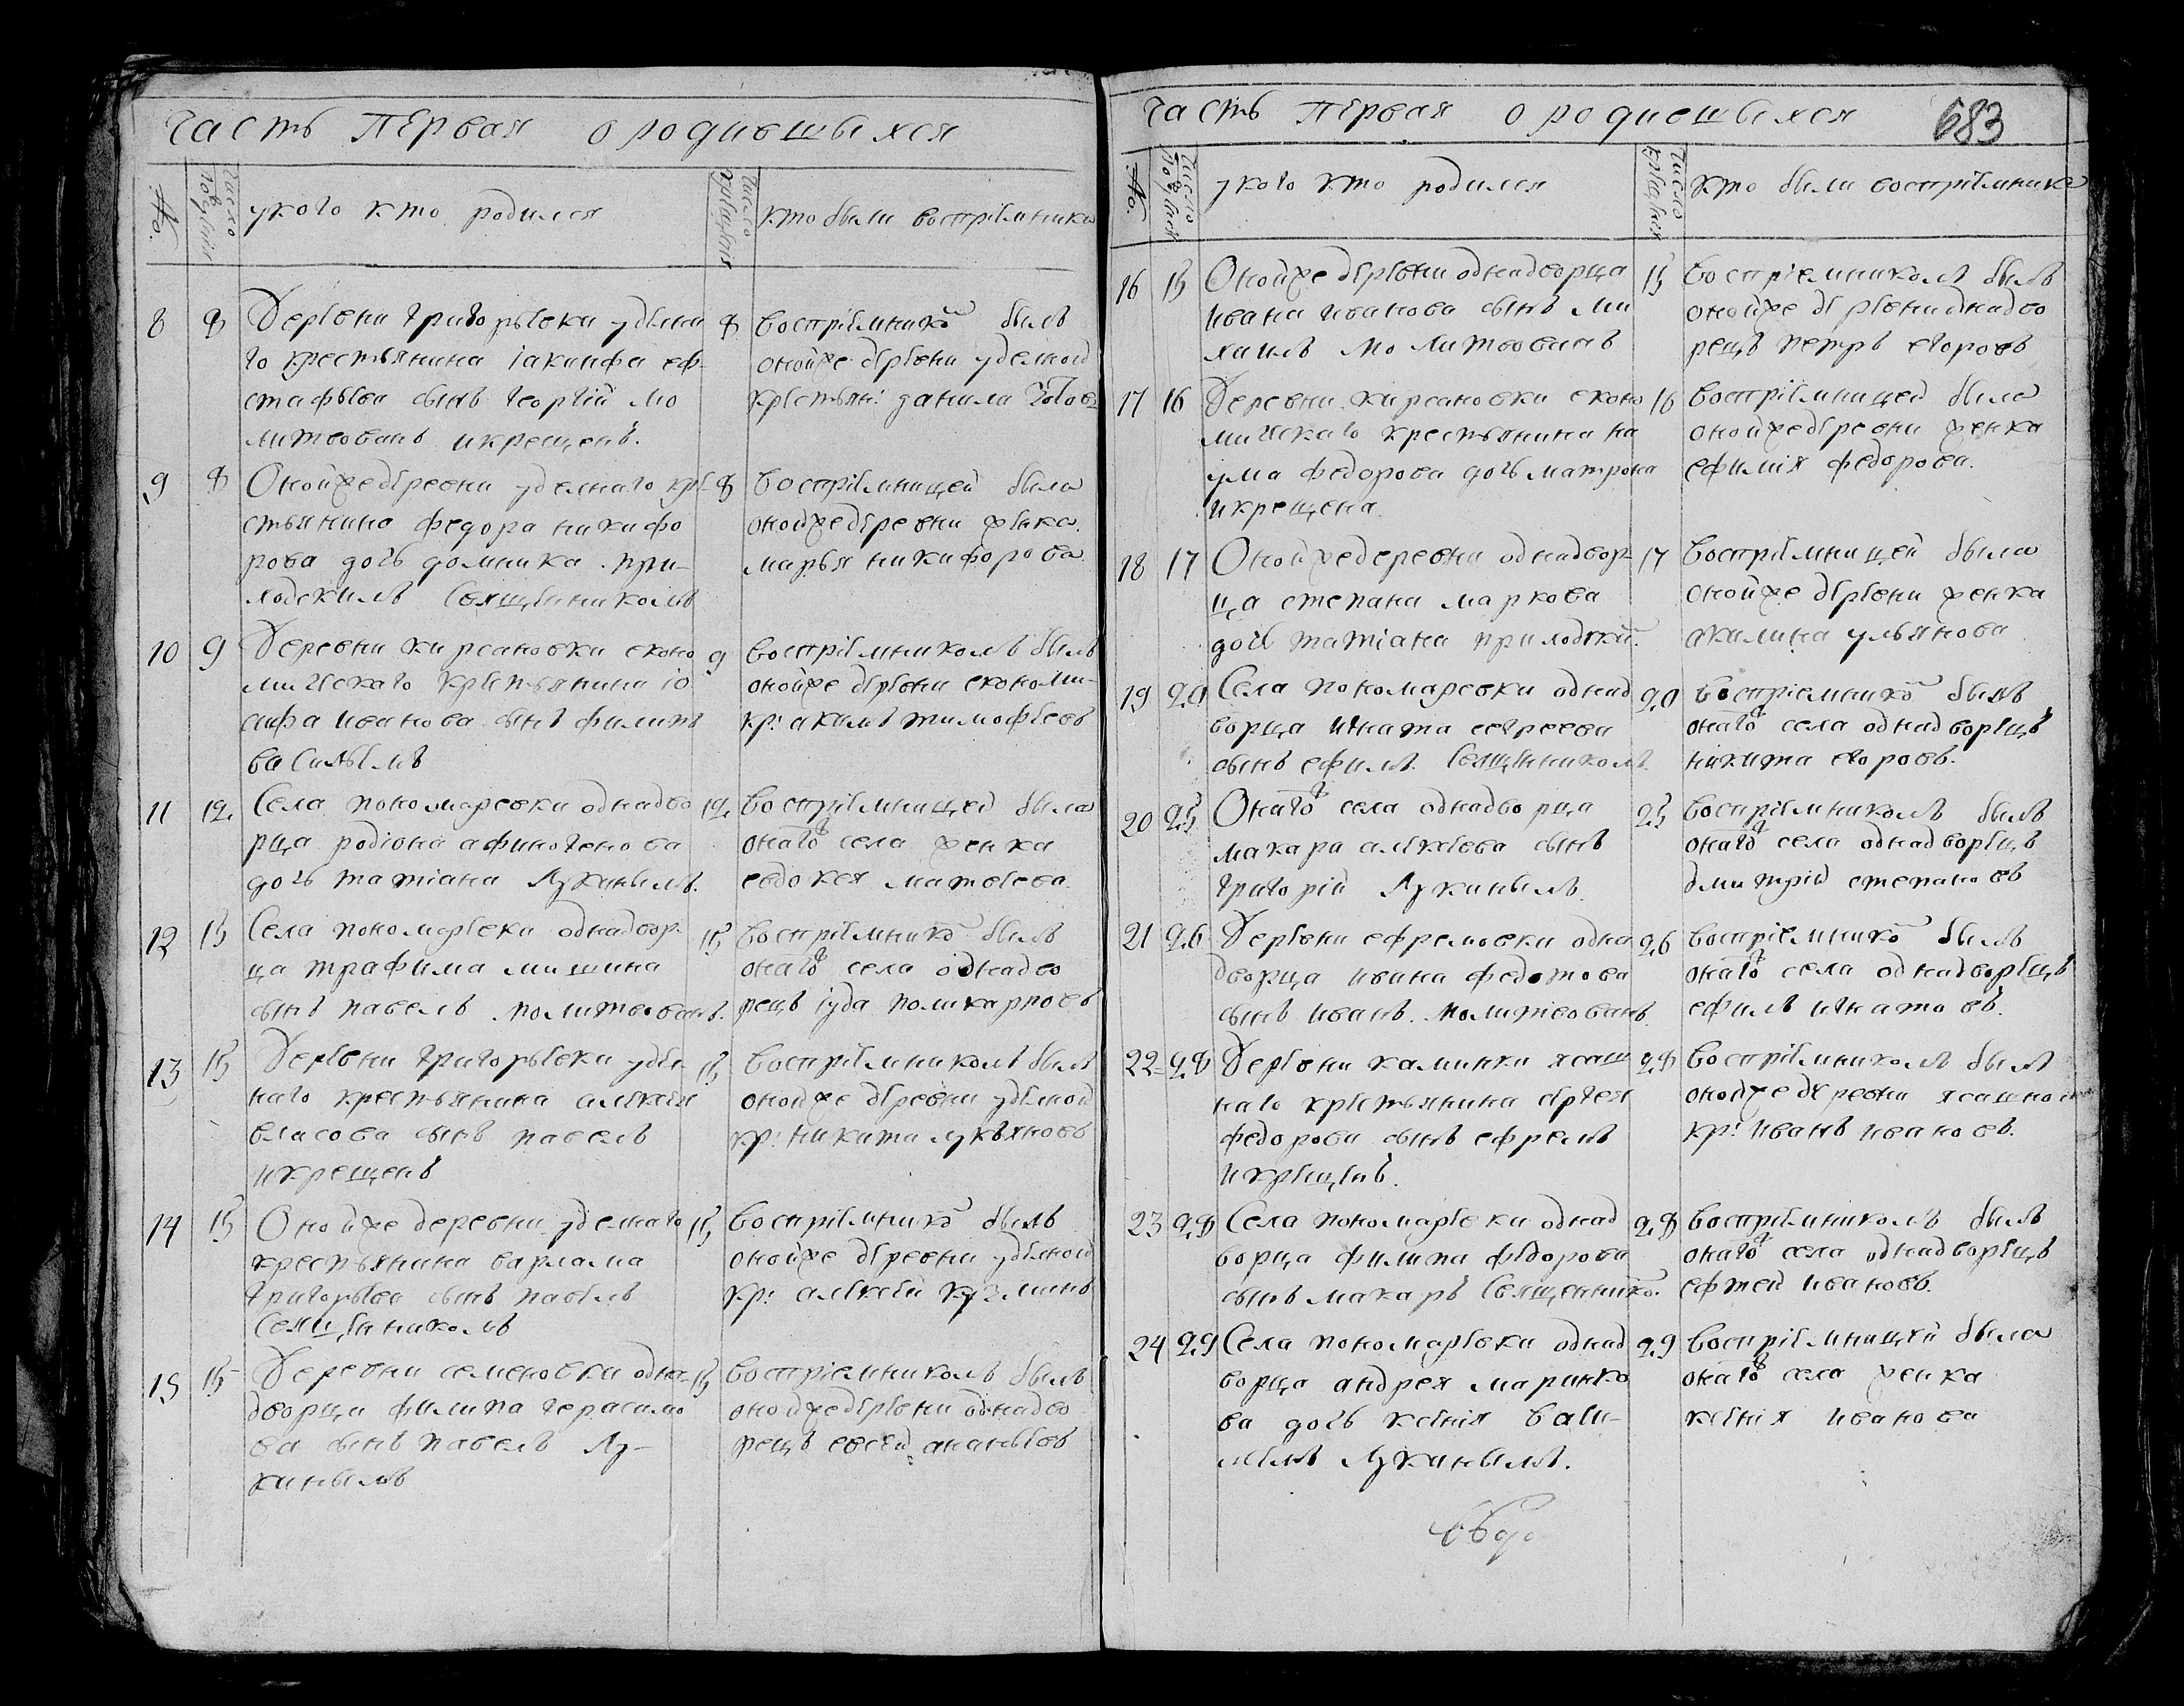 Часть первая о родившыхся
№.
число рожденія
у кого кто родился
число крещенія
кто были воспріемники
8
8
Деревни григорьевки удѣлна
го крестьянина іакинфа еф-
стафьева сынъ георгій мо
литвованъ и крещенъ.
8
воспріемнико былъ
оной же деревни уделной
крестьян: данила
9
8
Оной же деревни уделнаго кре-
стьянина федора никифо
рова дочь домника при-
ходскимъ священникомъ
8
воспріемницей была
оной же деревни женка
марья никифорова
10
9
Деревни кирсановки еконо
мическаго крестьянина іо
сифа иванова сынъ филипъ
васильемъ
9
воспріемникомъ былъ
оной же деревни економи-
кр: акимъ тимофеевъ
11
12
Села пономаревки однадво
рца родіона афиногенова
дочь татіана Лукинымъ.
12
воспріемницей была
онаго села женка
евдокея матвеева
12
15
Села пономаревки однадвор-
ца трафима мишина
сынъ павелъ молитвованъ.
15
воспріемнико былъ
онаго села однадво
рецъ іуда поликарповъ
13
15
Деревни григорьевки удел
наго крестьянина алексея
власова сынъ павелъ
и крещенъ
15
воспріемникомъ былъ
оной же деревни уделной
кр: никита лукьяновъ
14
15
Оной же деревни уделнаго
крестьянина варлама
григорьева сынъ павелъ
Священникомъ
15
воспріемнико былъ
оной же деревни уделной
кр: алексей кузминъ
15
15
Деревни семеновки одна-
дворца филипа герасимо
ва сынъ павелъ Лу-
кинымъ
15
воспріемникомъ былъ
оной же деревни однадво
рецъ евсей ананьевъ
Часть первая о родившыхся
683
№.
число рожденія
у кого кто родился
число крещенія
кто были воспріемники
16
15
Оной же деревни однадворца
ивана иванова сынъ ми
хаилъ молитвованъ
15
воспріемникомъ былъ
оной же деревни однадво
рецъ петръ егоровъ
17
16
Деревни кирсановки еконо
мическаго крестьянина на
ума федорова дочь матрона
и крещена.
16
воспріемницей была
оной же деревни женка
ефимія федорова.
18
17
Оной же деревни однадвор-
ца степана маркова
дочь татіана приходски.
17
воспріемницей была
оной же деревни женка
акилина ульянова
19
20
Села пономаревки однад
ворца игната евсеева
сынъ ефимъ. Священникомъ.
20
воспріемнико былъ
онаго села однадворецъ
никита егоровъ.
20
25
Онаго села однадворца
макара алексеева сынъ
григорій Лукинымъ.
25
воспріемникомъ былъ
онаго села однадворецъ
дмитрій степановъ
21
26
Деревни ефремовки одна
дворца ивана федотова
сынъ иванъ. молитвованъ.
26
воспріемнико былъ
онаго села однадворецъ
ефимъ игнатовъ.
22
28
Деревни каминки ясаш
наго крестьянина сергея
федорова сынъ ефремъ
и крещенъ.
28
воспріемникомъ былъ
оной же деревни ясашной
кр: иванъ ивановъ.
23
28
Села пономаревки однад
ворца филипа федорова
сынъ макаръ Священнико.
28
воспріемникомъ былъ
онаго села однадворецъ
ефтей ивановъ.
24
29
Села пономаревки однад
ворца андрея маринко
ва дочь ксенія Васи-
лемъ Лукинымъ.
29
воспріемницей была
онаго села женка
ксенія иванова